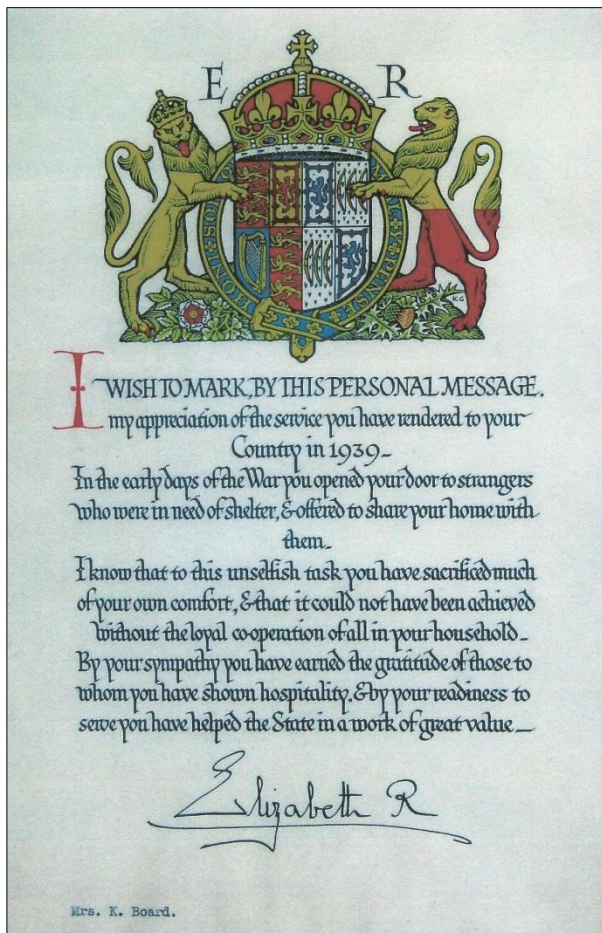 E R
HONI·SOI
Y·PENSE
KG
I WISH TO MARK, BY THIS PERSONAL MESSAGE,
my appreciation of the service you have rendered to your
Country in 1939_
In the early days of the War you opened your door to strangers
who were in need of shelter, & offered to share your home with
them_
I know that to this unselfish task you have sacrificed much
of your own comfort, & that it could not have been achieved
without the loyal co-operation of all in your household_
By your sympathy you have earned the gratitude of those to
whom you have shown hospitality, & by your readiness to
serve you have helped the State in a work of great value_
Elizabeth R
Mrs. K. Board.